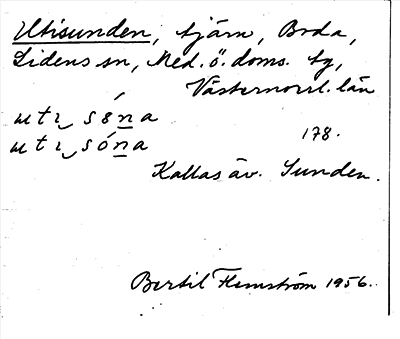 Utisunden, tjärn, Boda,
Lidens sn, Med. ö. doms. tg,
Västernorrl. län
utı sóna
utı sóna
178.
Kallas äv. Sunden.
Bertil Flemström 1956.